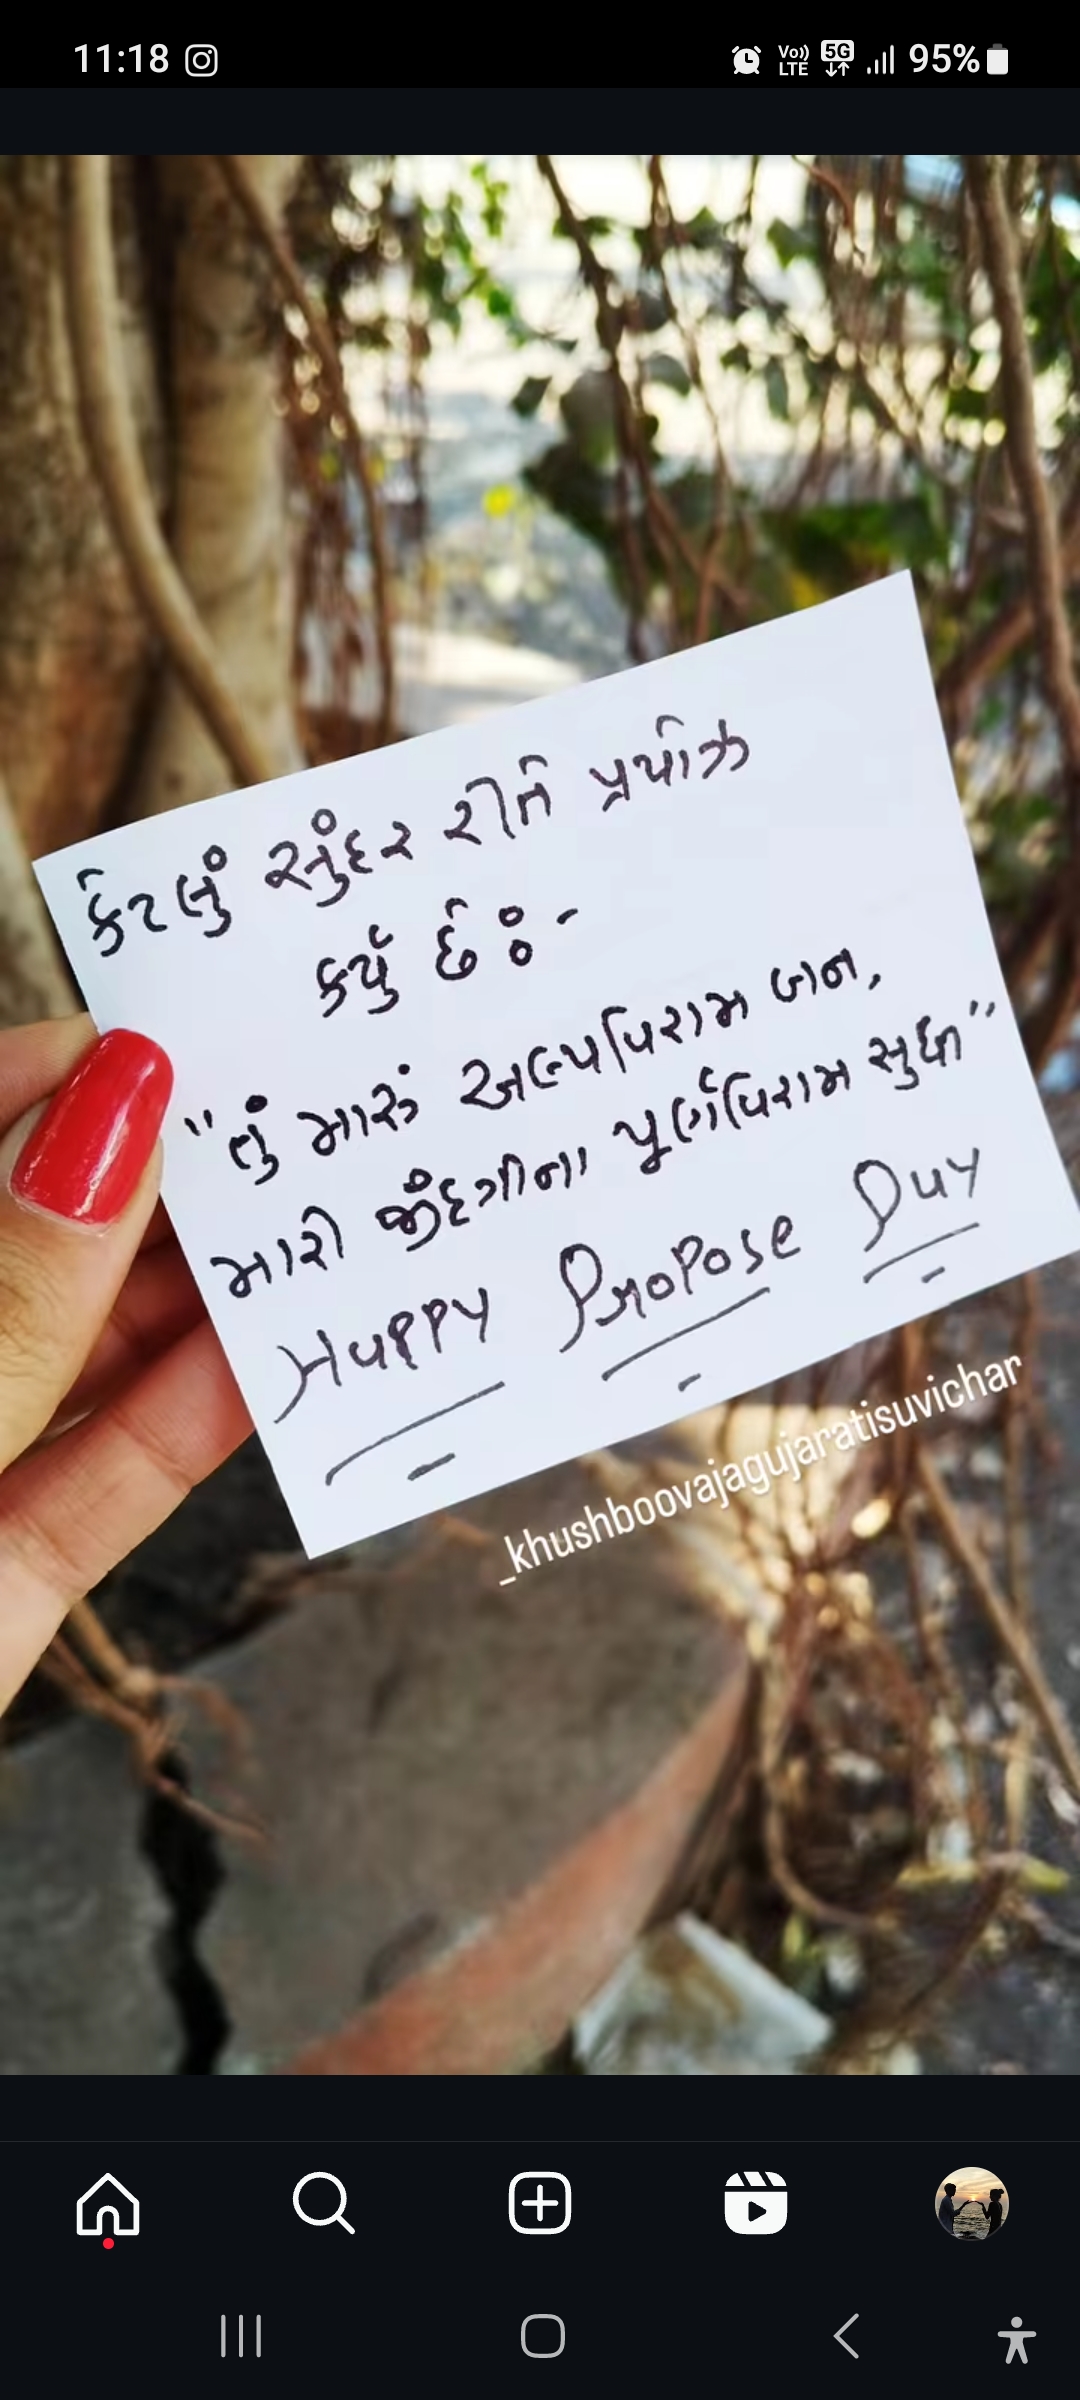 11:18
Vo)) LTE 5G 95%
કેટલું સુંદર રીતે પ્રપોઝ
કર્યું છે :-
"તું મારું અલ્પવિરામ બન,
મારી જીંદગીના પૂર્ણવિરામ સુધી"
Happy Propose Day
_khushboovajagujaratisuvichar